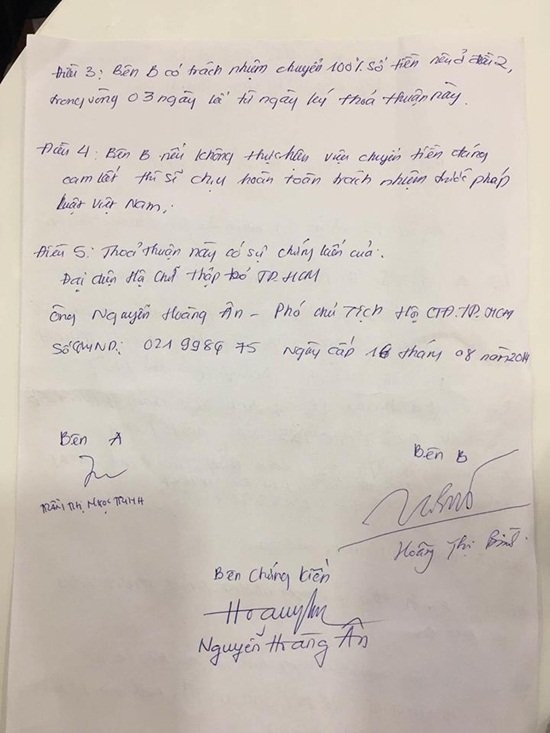 Điều 3: Bên B có trách nhiệm chuyển 100% số tiền nêu ở điều 2,
trong vòng 03 ngày kể từ ngày ký thoả thuận này.
Điều 4: Bên B nếu không thực hiện việc chuyển tiền đúng
cam kết thì sẽ chịu hoàn toàn trách nhiệm trước pháp
luật Việt Nam.
Điều 5: Thoả thuận này có sự chứng kiến của:
Đại diện Hội Chữ thập đỏ TP.HCM
Ông Nguyễn Hoàng Ân - Phó chủ Tịch Hội CTĐ.TP.HCM
Số CMND: 021998675 Ngày cấp 16 tháng 08 năm 2014
Bên A
Bên B
TRẦN THỊ NGỌC TRINH
Hoàng Thị
Bên Chứng kiến
Nguyễn Hoàng Ân